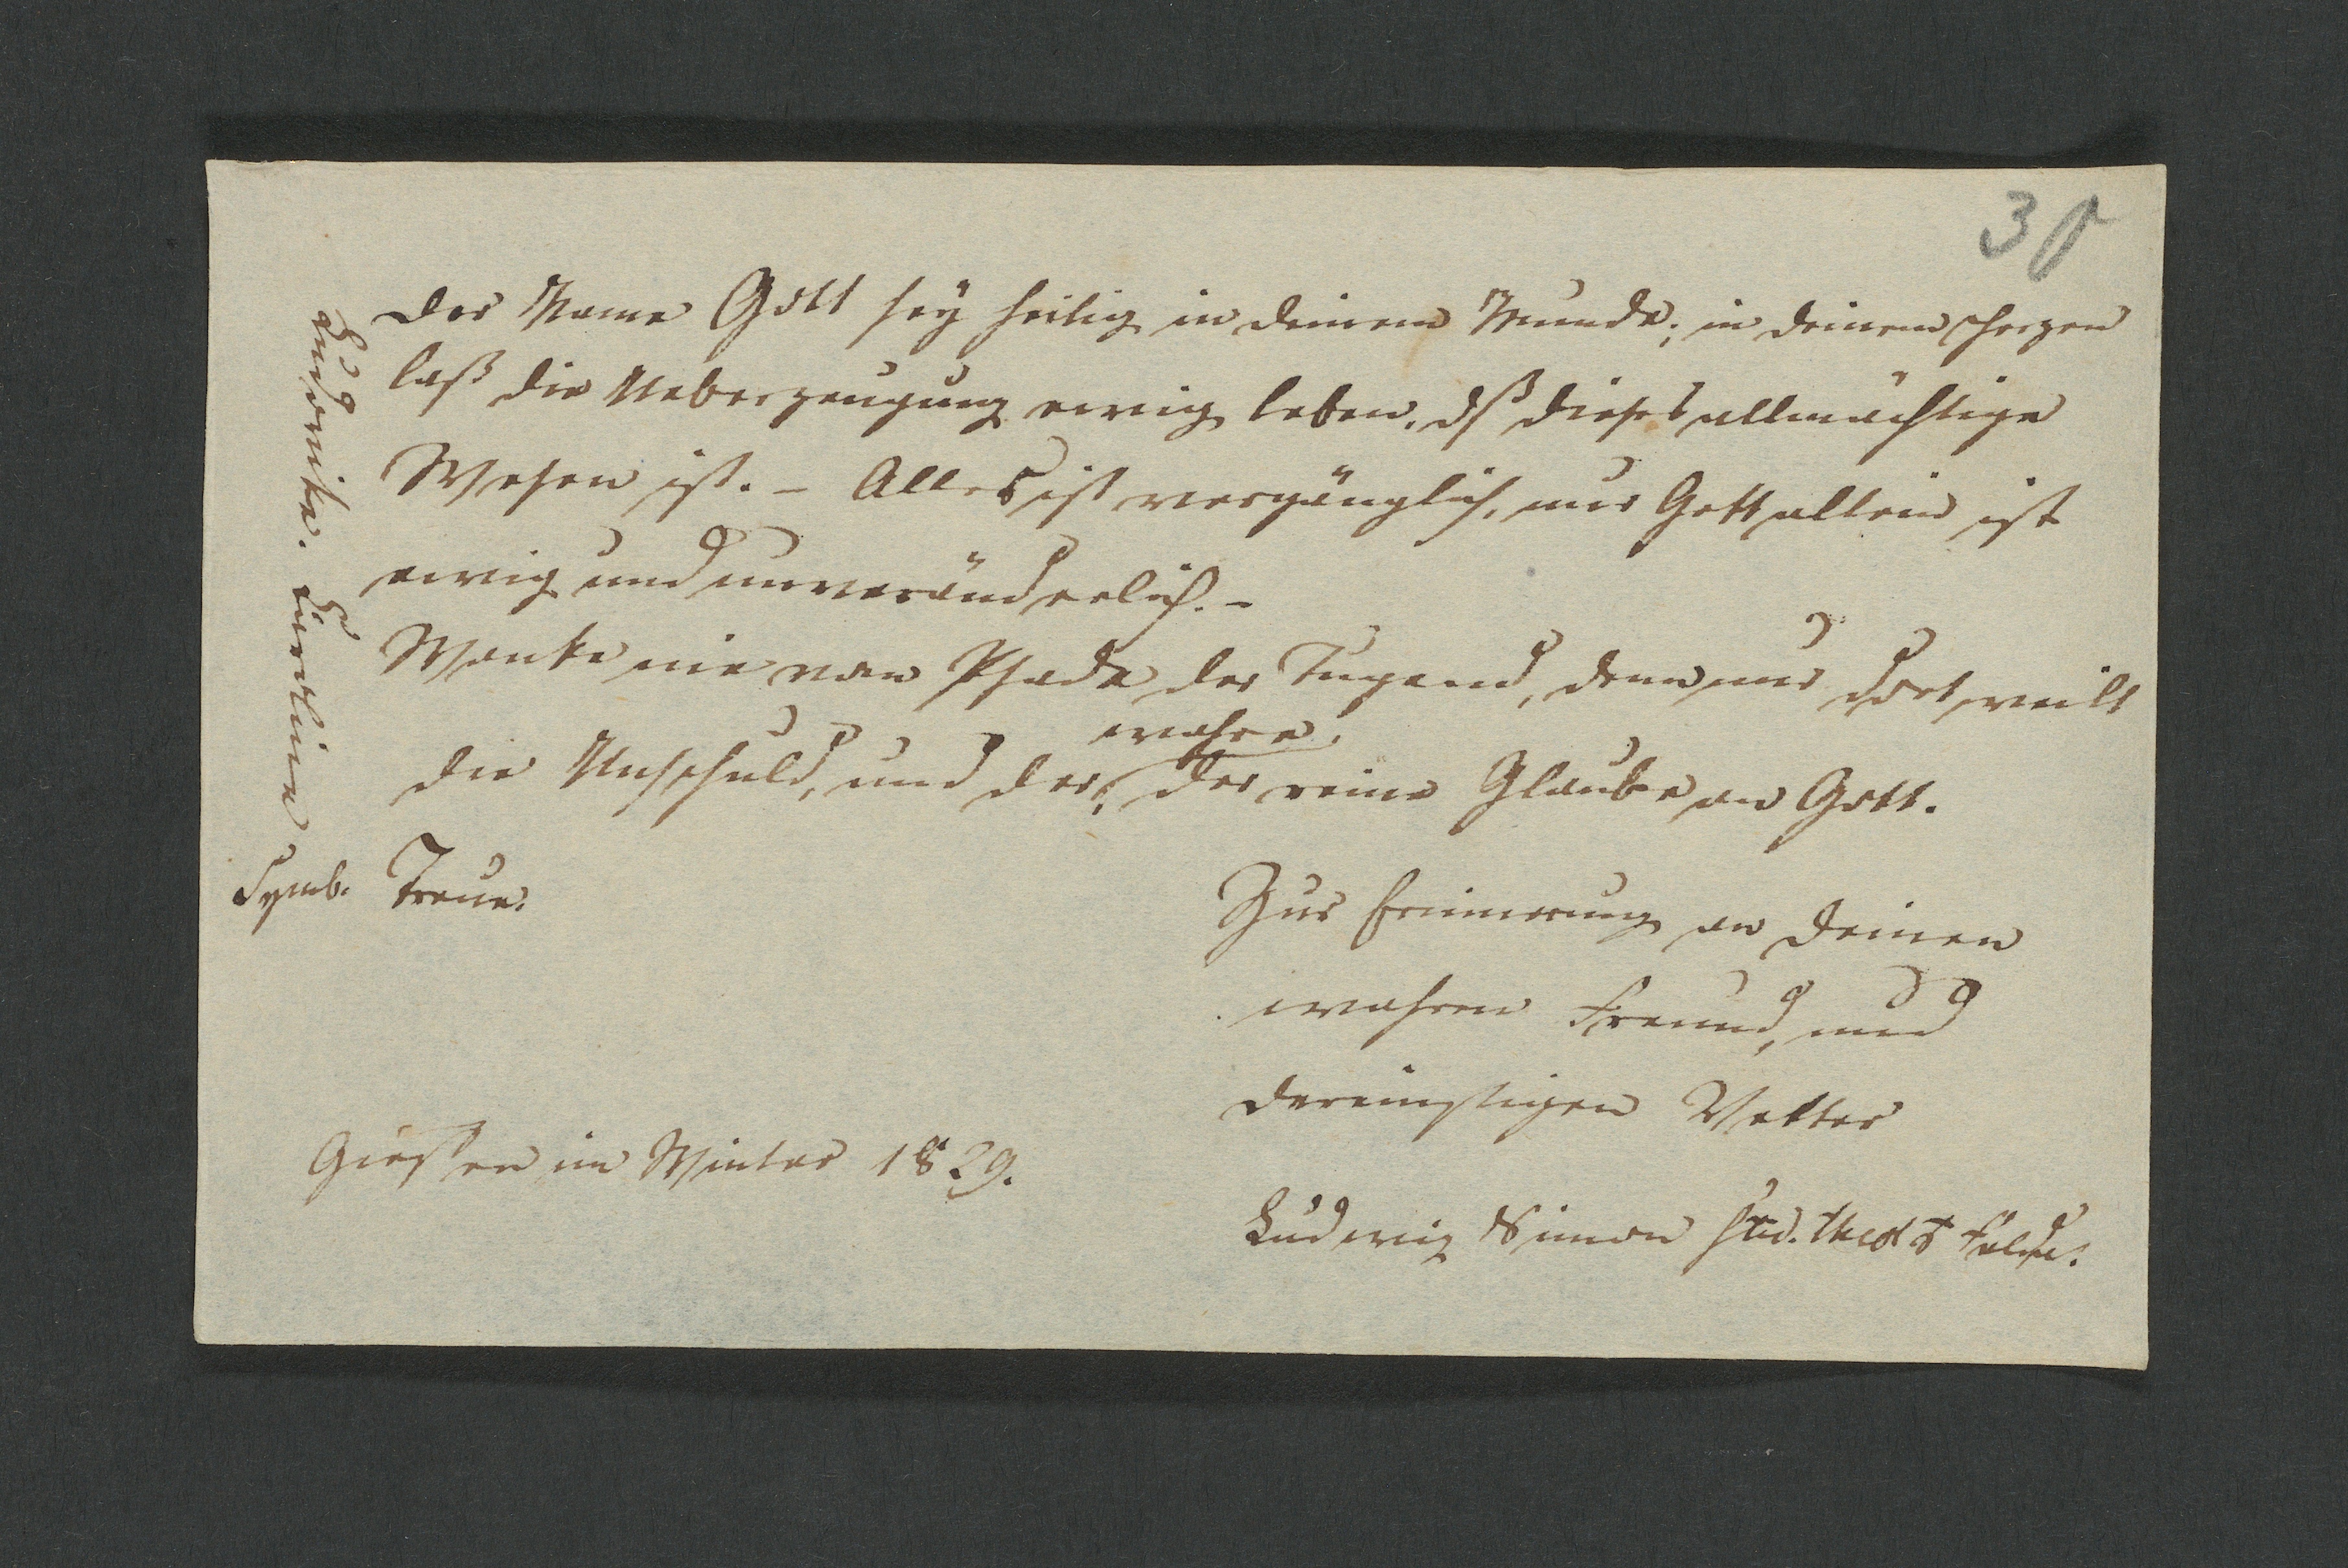 38
Der Name Gott sey heilig in deinem Munde; in deinem Herzen
laß die Ueberzeugung ewig leben, dß dieses allmächtige
Wesen ist. – Alles ist vergänglich, nur Gott allein ist
ewig und unveränderlich. –
Wanke nie vom Pfade der Tugend, denn nur dort weilt
wahre,
die Unschuld, und der, der reine Glaube an Gott.
Symb. Treue.
Zur Erinnerung an deinen
wahren Freund, und
dereinstigen Vetter
Giesen im Winter 1829.
Ludwig Simon stud. theol